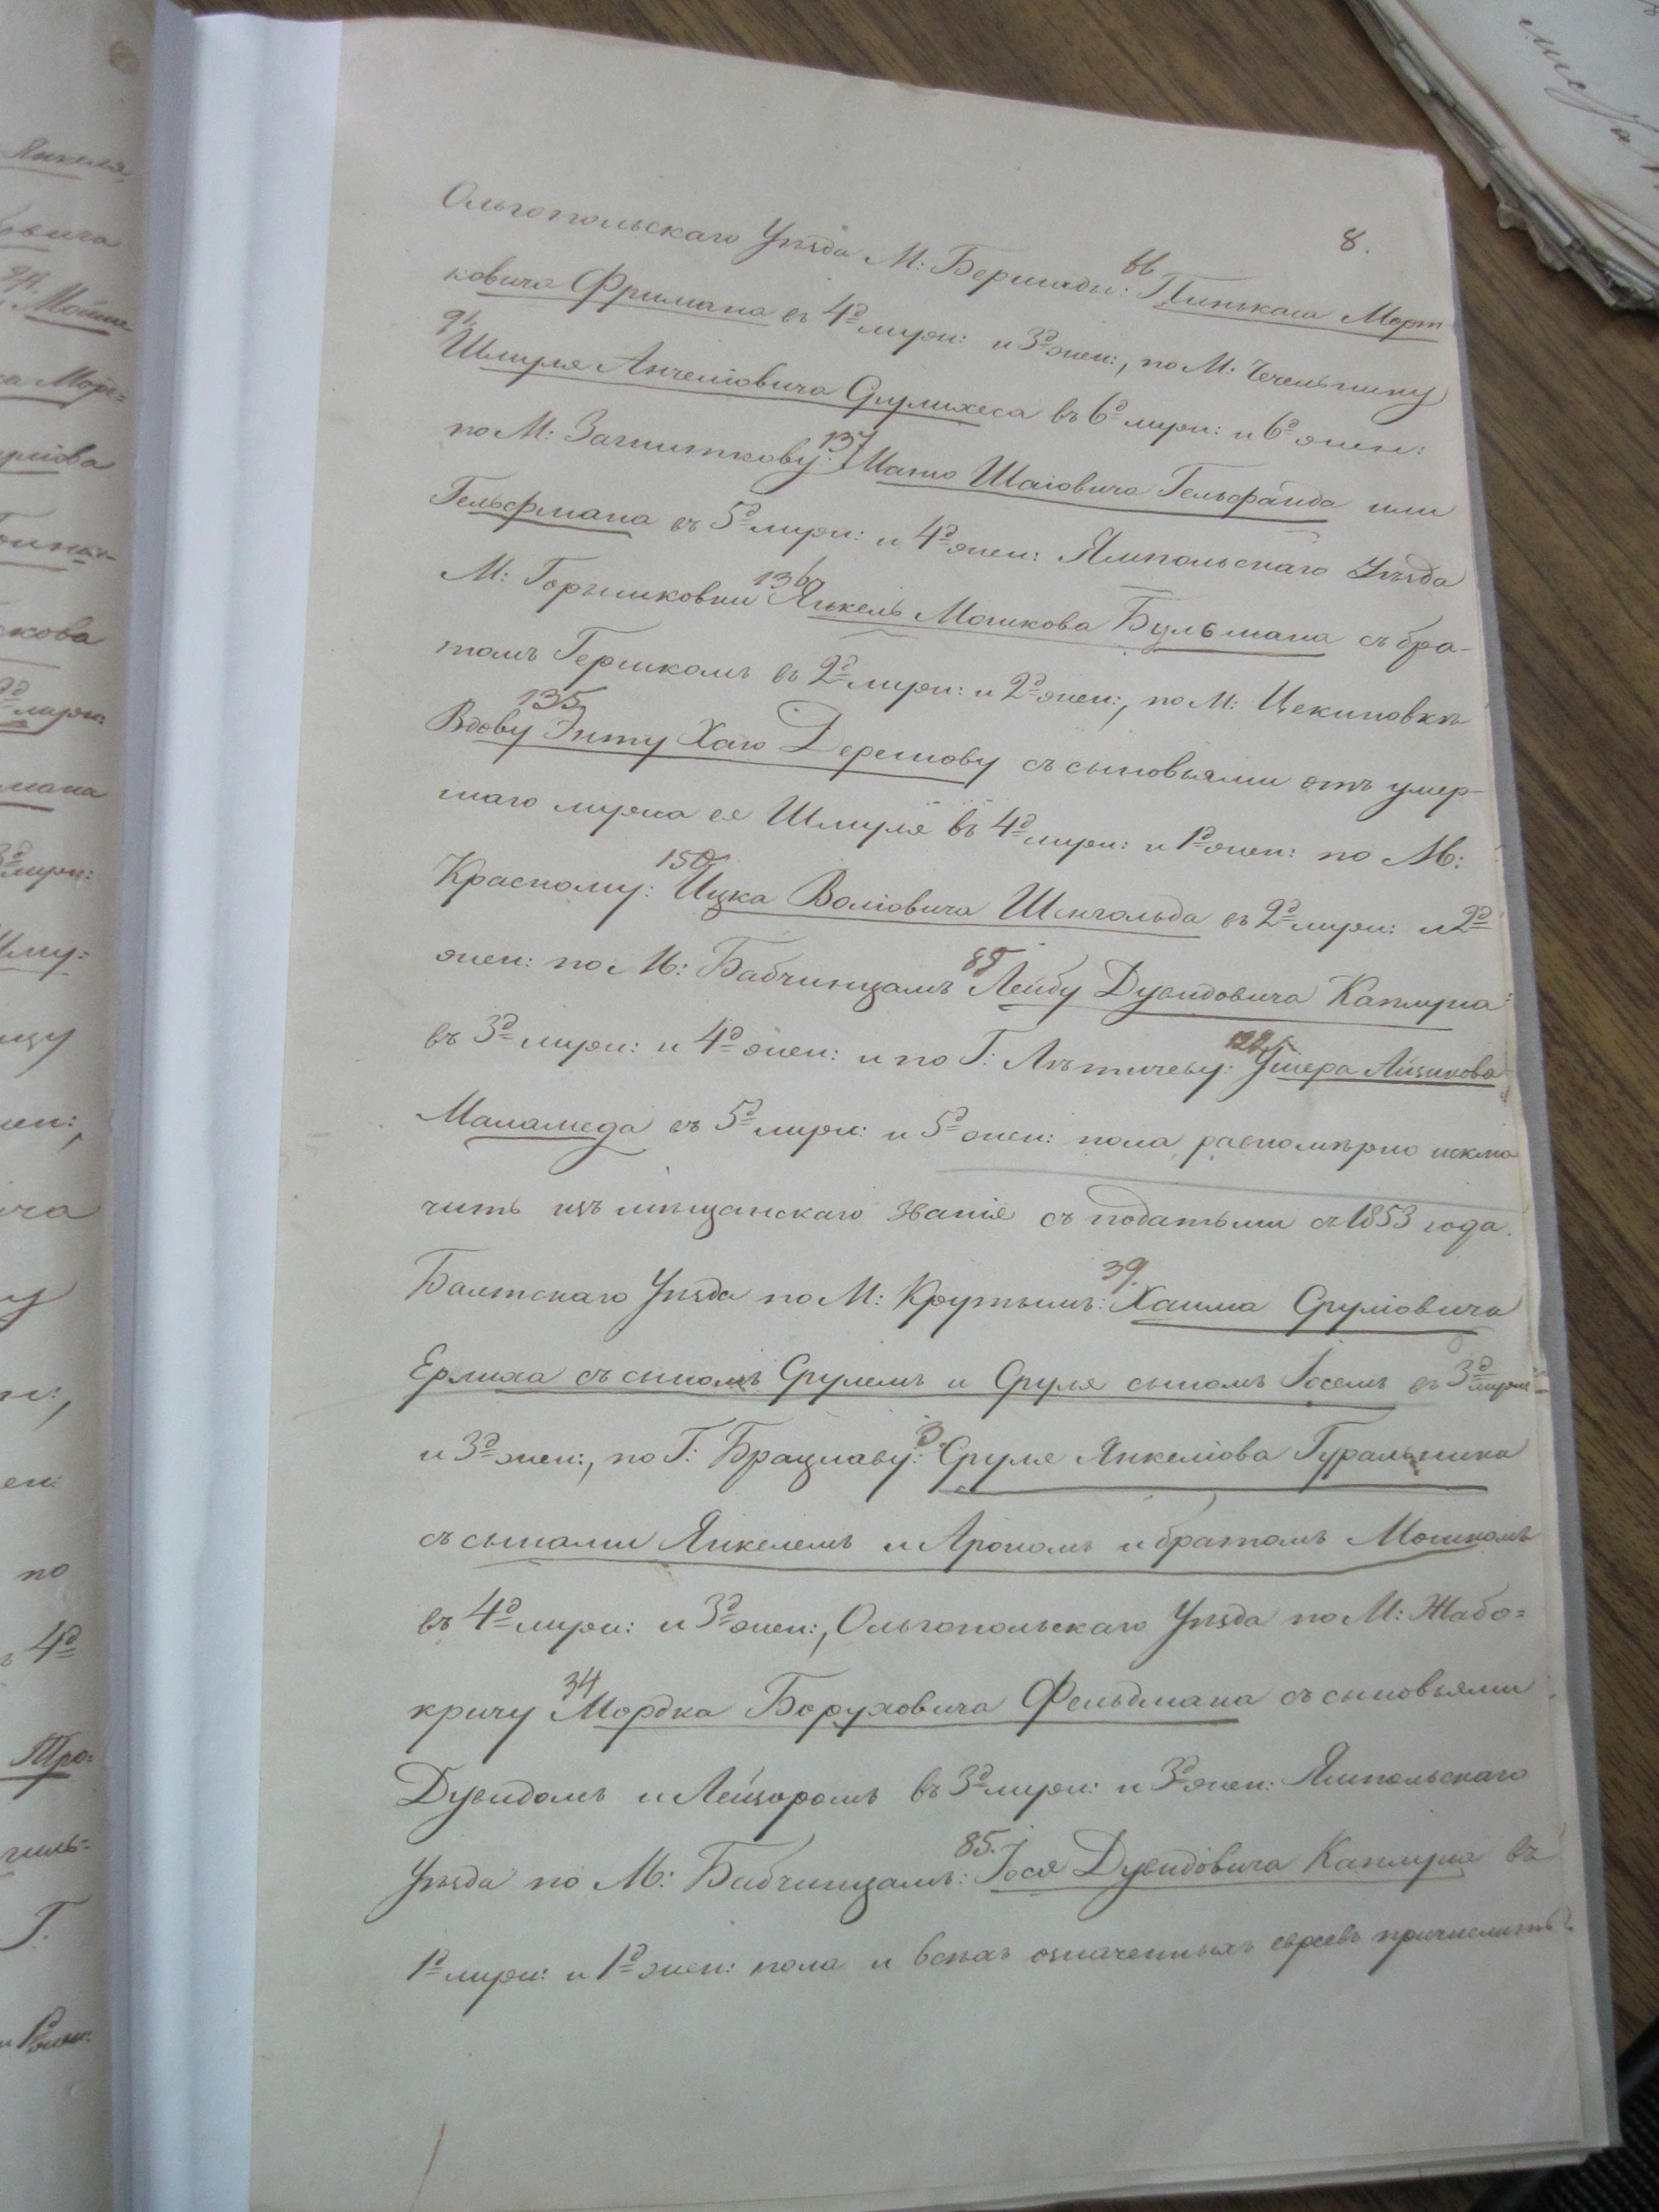 8.
Ольгопольскаго Уѣзда М: Бершади: 66 Пинькаса Морт
ковича Фримана въ 4д муж: и 3д жен:, по М: Чечельнику
91. Шмуля Анчеліовича Срулихеса въ 6д муж: и 6д жен:
по М: Загниткову: 137 Матю Шаіовича Гельфанда или
Гельфмана въ 5д муж: и 4д жен: Ямпольскаго Уѣзда
М: Горышковки 136 Янкель Мошкова Бульмана съ бра-
томъ Гершкомъ въ 2д муж: и 2д жен:, по М: Цекиновкѣ
135 Вдову Энту Хаю Дерешову съ сыновьями отъ умер-
шаго мужа ея Шмуля въ 4д муж: и 1д жен: по М:
Красному: 150 Ицка Воліовича Шенгольда въ 2д муж: и 2д
жен: по М: Бабчинцамъ 85 Лейбу Дувидовича Каплуна
въ 3д муж: и 4д жен: и по Г: Лѣтичеву: 122 Ушера Айзикова
Маламеда въ 5д муж: и 5д жен: пола равномѣрно исклю
чить изъ мѣщанскаго званія съ податьми съ 1853 года.
Балтскаго Уѣзда по М: Крутымъ: 39. Хаима Сруліовича
Ерлиха съ сыномъ Срулемъ и Сруля сыномъ Іосемъ въ 3д муж:
и 3д жен:, по Г: Брацлаву: 3. Сруля Янкеліова Гуральника
съ сынами Янкелемъ и Арономъ и братомъ Мошкомъ
въ 4д муж: и 3д жен:, Ольгопольскаго Уѣзда по М: Жабо=
кричу 34 Мордка Боруховича Фельдмана съ сыновьями
Дувидомъ и Лейзоромъ въ 3д муж: и 3д жен: Ямпольскаго
Уѣзда по М: Бабчинцамъ: 85. Іося Дувидовича Каплуна въ
1д муж: и 1д жен: пола и всѣхъ означенныхъ евреевъ причислить